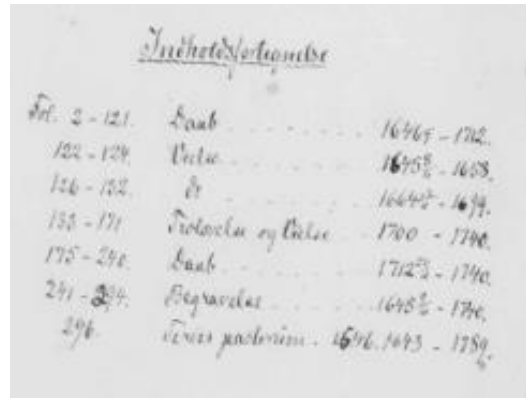 Indholdsfortegnelse
Fol. 2 - 121. Daab - - - - - - 1646 - 1712.
122 - 124. Vielse - - - - - 1645 - 1658.
126 - 132. do - - - - - 1664 - 1699.
133 - 171 Trolovelse og Vielse - - 1700 - 1740.
175 - 240. Daab - - - - - - 1712 - 1740.
241 - 294. Begravelse - - - - 1645 - 1740.
296. Series pastorum - 1546. 1643 - 1789.